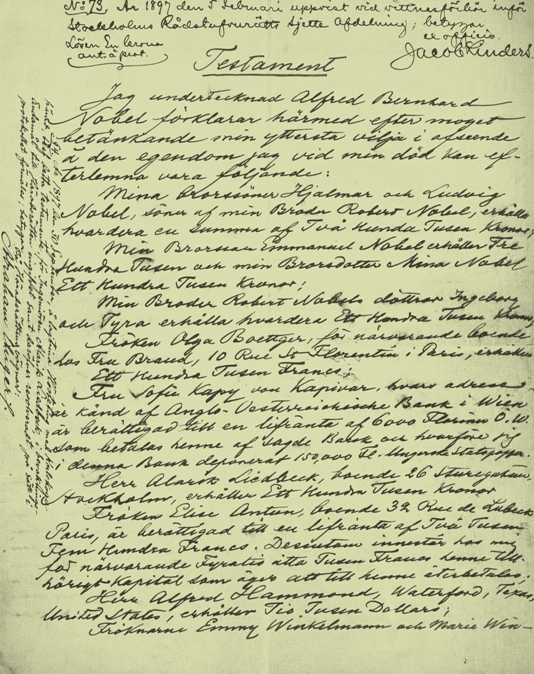 No 73. År 1897 den 5 Februari uppvist vid vittnesförhör inför
Stockholms Rådstufvurätts Sjette Afdelning; betygar
ex officio.
Lösen En krona
Testament
Jag undertecknad Alfred Bernhard
Nobel förklarar härmed efter moget
betänkande min yttersta vilja i afseende
å den egendom jag vid min död kan ef-
terlemna vara följande:
Mina brorsöner Hjalmar och Ludvig
Nobel, söner af min Broder Robert Nobel, erhålla
hvardera en summa af Två Hundra Tusen Kronor;
Min Brorson Emmanuel Nobel erhåller Tre
Hundra Tusen och min Brorsdotter Mina Nobel
Ett Hundra Tusen Kronor;
Min Broder Robert Nobels döttrar Ingeborg
och Tyra erhålla hvardera Ett Hundra Tusen Kronor;
Fröken Olga Boettger, för närvarande boende
hos Fru Brand, 10 Rue St Florentin i Paris, erhåller
Ett Hundra Tusen Francs;
Fru Sofie Kapy von Kapivar, hvars adress
är känd af Anglo-Oesterreichische Bank i Wien
är berättigad till en lifränta af 6000 Florins Ö.W.
som betalas henne af sagde Bank och hvarför jag
i denna Bank deponerat 150,000 Fl. i Ungerska Statspapper;
Herr Alarik Liedbeck, boende 26 Sturegatan,
Stockholm, erhåller Ett Hundra Tusen Kronor;
Fröken Elise Antun, boende 32 Rue de Lubeck,
Paris, är berättigad till en lifränta af Två Tusen
Fem Hundra Francs. Dessutom innestår hos mig
för närvarande Fyratio åtta Tusen Francs henne till-
hörigt Kapital som äger att till henne återbetalas;
Herr Alfred Hammond, Waterford, Texas,
United States, erhåller Tio Tusen Dollars;
Fröknarne Emmy Winkelmann och Marie Win-